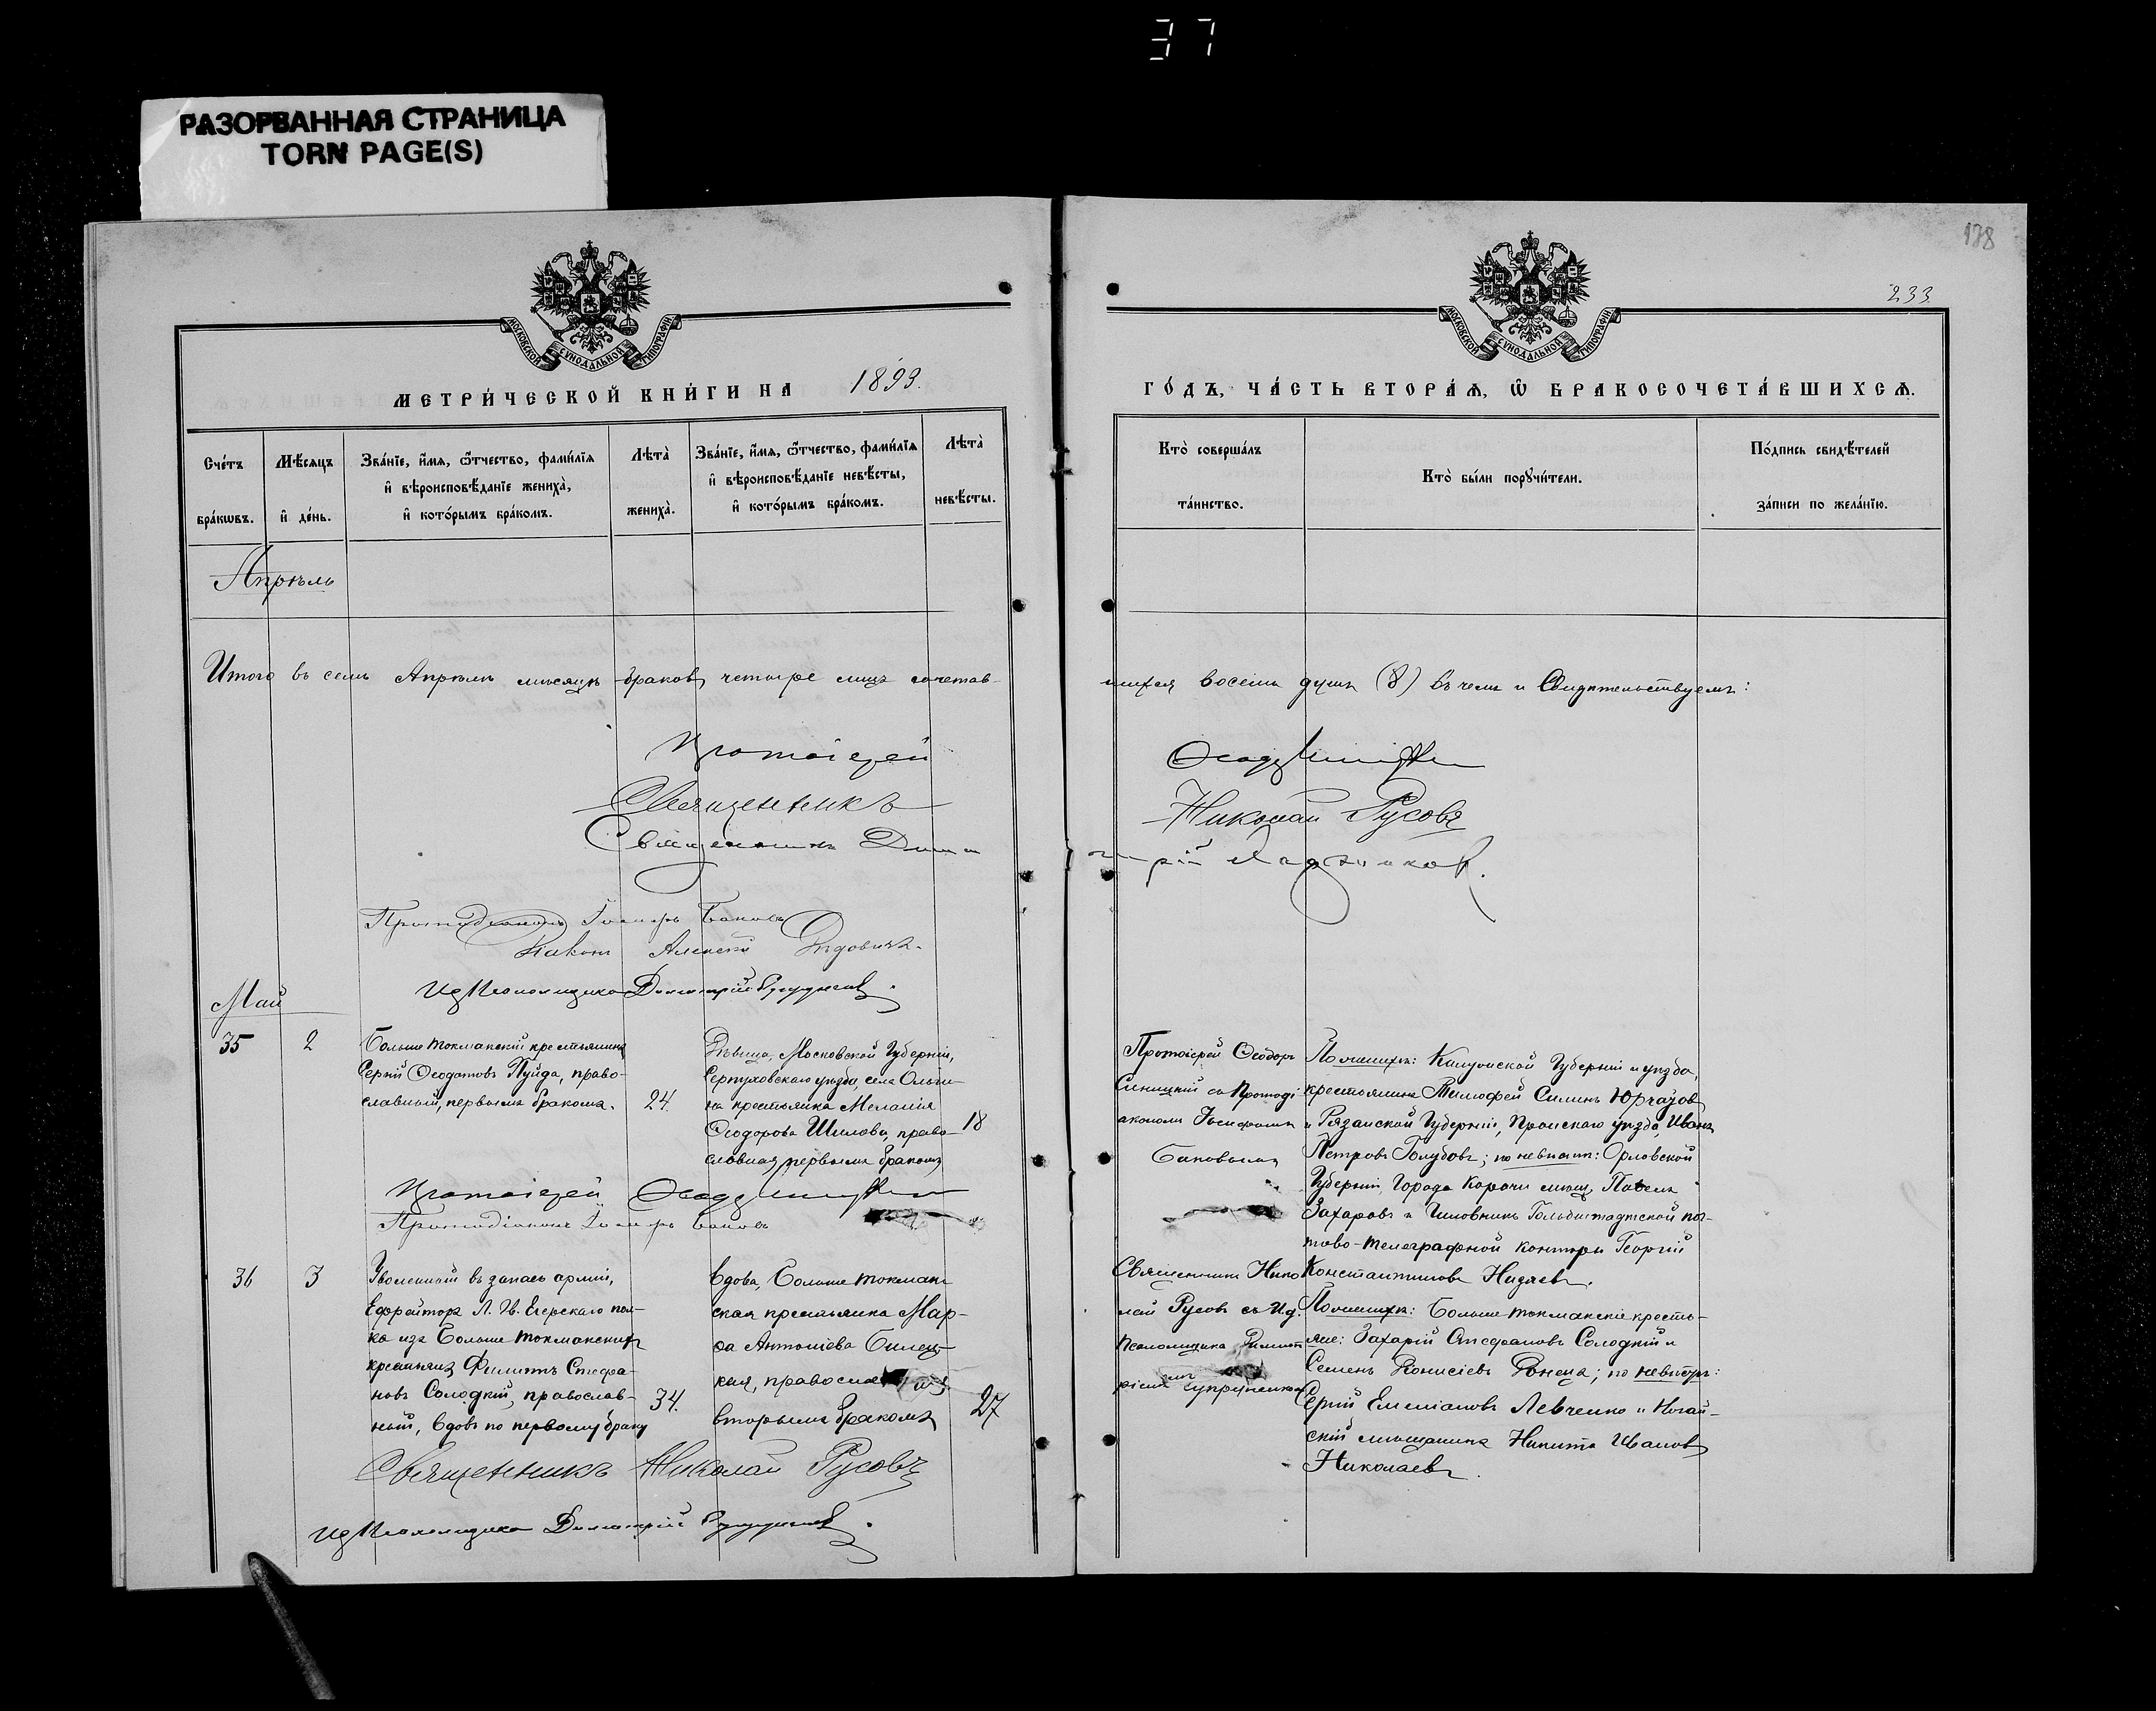 37
РАЗОРВАННАЯ СТРАНИЦА
TORN PAGE(S)
178
233
МОСКОВСКОЙ СУНОДАЛЬНОЙ ТИПОГРАФІИ
МОСКОВСКОЙ СУНОДАЛЬНОЙ ТИПОГРАФІИ
МЕТРИ́ЧЕСКОЙ КНИ́ГИ НА 1893.
ГО́ДЪ, ЧА́СТЬ ВТОРА́Ѧ, Ѿ БРАКОСОЧЕТА́ВШИХСѦ.
Сче́тъ бра́кѡвъ.
Мѣ́сяцъ и҆ де́нь.
Зва́нїе, и҆́мѧ, ѻ҆́тчество, фами́лїѧ
и҆ вѣроисповѣ́данїе жениха̀,
и҆ кото́рымъ бра́комъ.
Лѣта̀ жениха̀.
Зва́нїе, и҆́мѧ, ѻ҆́тчество, фами́лїѧ
и҆ вѣроисповѣ́данїе невѣ́сты,
и҆ кото́рымъ бра́комъ.
Лѣта̀ невѣ́сты.
Кто̀ соверша́лъ
та́инство.
Кто̀ бы́ли порꙋчи́тели.
По́дпись свидѣ́телей
за́писи по жела́нїю.
Апрѣль
Итого въ семъ Апрѣлѣ мѣсяцѣ браковъ четыре лицъ сочетав-
шихся восемь душъ (8) въ чемъ и Свидѣтельствуемъ:
Протоіерей Ѳеодоръ
Священникъ Николай Русовъ
Священникъ Димитрій
Протодіаконъ Іосифъ Баковъ
Алексѣй
И д Псаломщика Димитрій
Май
35
2
Больше Токмакскій крестьянинъ
Сергій Ѳеодотовъ Пуйда, право-
славный, первымъ бракомъ.
24.
Дѣвица, Московской Губерніи,
Серпуховскаго уѣзда, села
на крестьянка Меланія
Ѳеодорова Шилова, право-
славная, первымъ бракомъ
18
Протоіерей Ѳеодоръ
Синицкій съ Протоді-
акономъ Іосифомъ
Баковымъ
По женихѣ: Калужской Губерніи и уѣзда,
крестьянинъ Тимофей Силинъ
и Рязанской Губерніи, Пронскаго уѣзда, Иванъ
Петровъ Голубовъ; по невѣстѣ: Орловской
Губерніи, Города Карачи мѣщ. Павелъ
Захаровъ и Чиновникъ Гальбштадтской поч-
тово-телеграфной конторы Георгій
Константиновъ
Протоіерей Ѳеодоръ
Протодіаконъ Іосифъ Баковъ
36
3
Уволенный въ запасъ арміи,
Ефрейторъ Л. Гв. Егерскаго пол-
ка изъ Больше Токмакскихъ
крестьянъ Филиппъ Стефа-
новъ Солодкій, православ-
ный, вдовъ по первому браку
34.
Вдова, Больше Токмак-
ская крестьянка Мар-
ѳа Антоніева Билец-
кая, православ
вторымъ бракомъ
27
Священникъ Нико-
лай Русовъ съ И. д.
Псаломщика Димит-
ріемъ
По женихѣ: Больше Токмакскіе кресть-
яне: Захарій Стефановъ Солодкій и
Семенъ Діонисіевъ; по невѣстѣ:
Сергій Емиліановъ Левченко и Ногай-
скій мѣщанинъ Никита Ивановъ
Николаевъ.
Священникъ Николай Русовъ
И д Псаломщика Димитрій